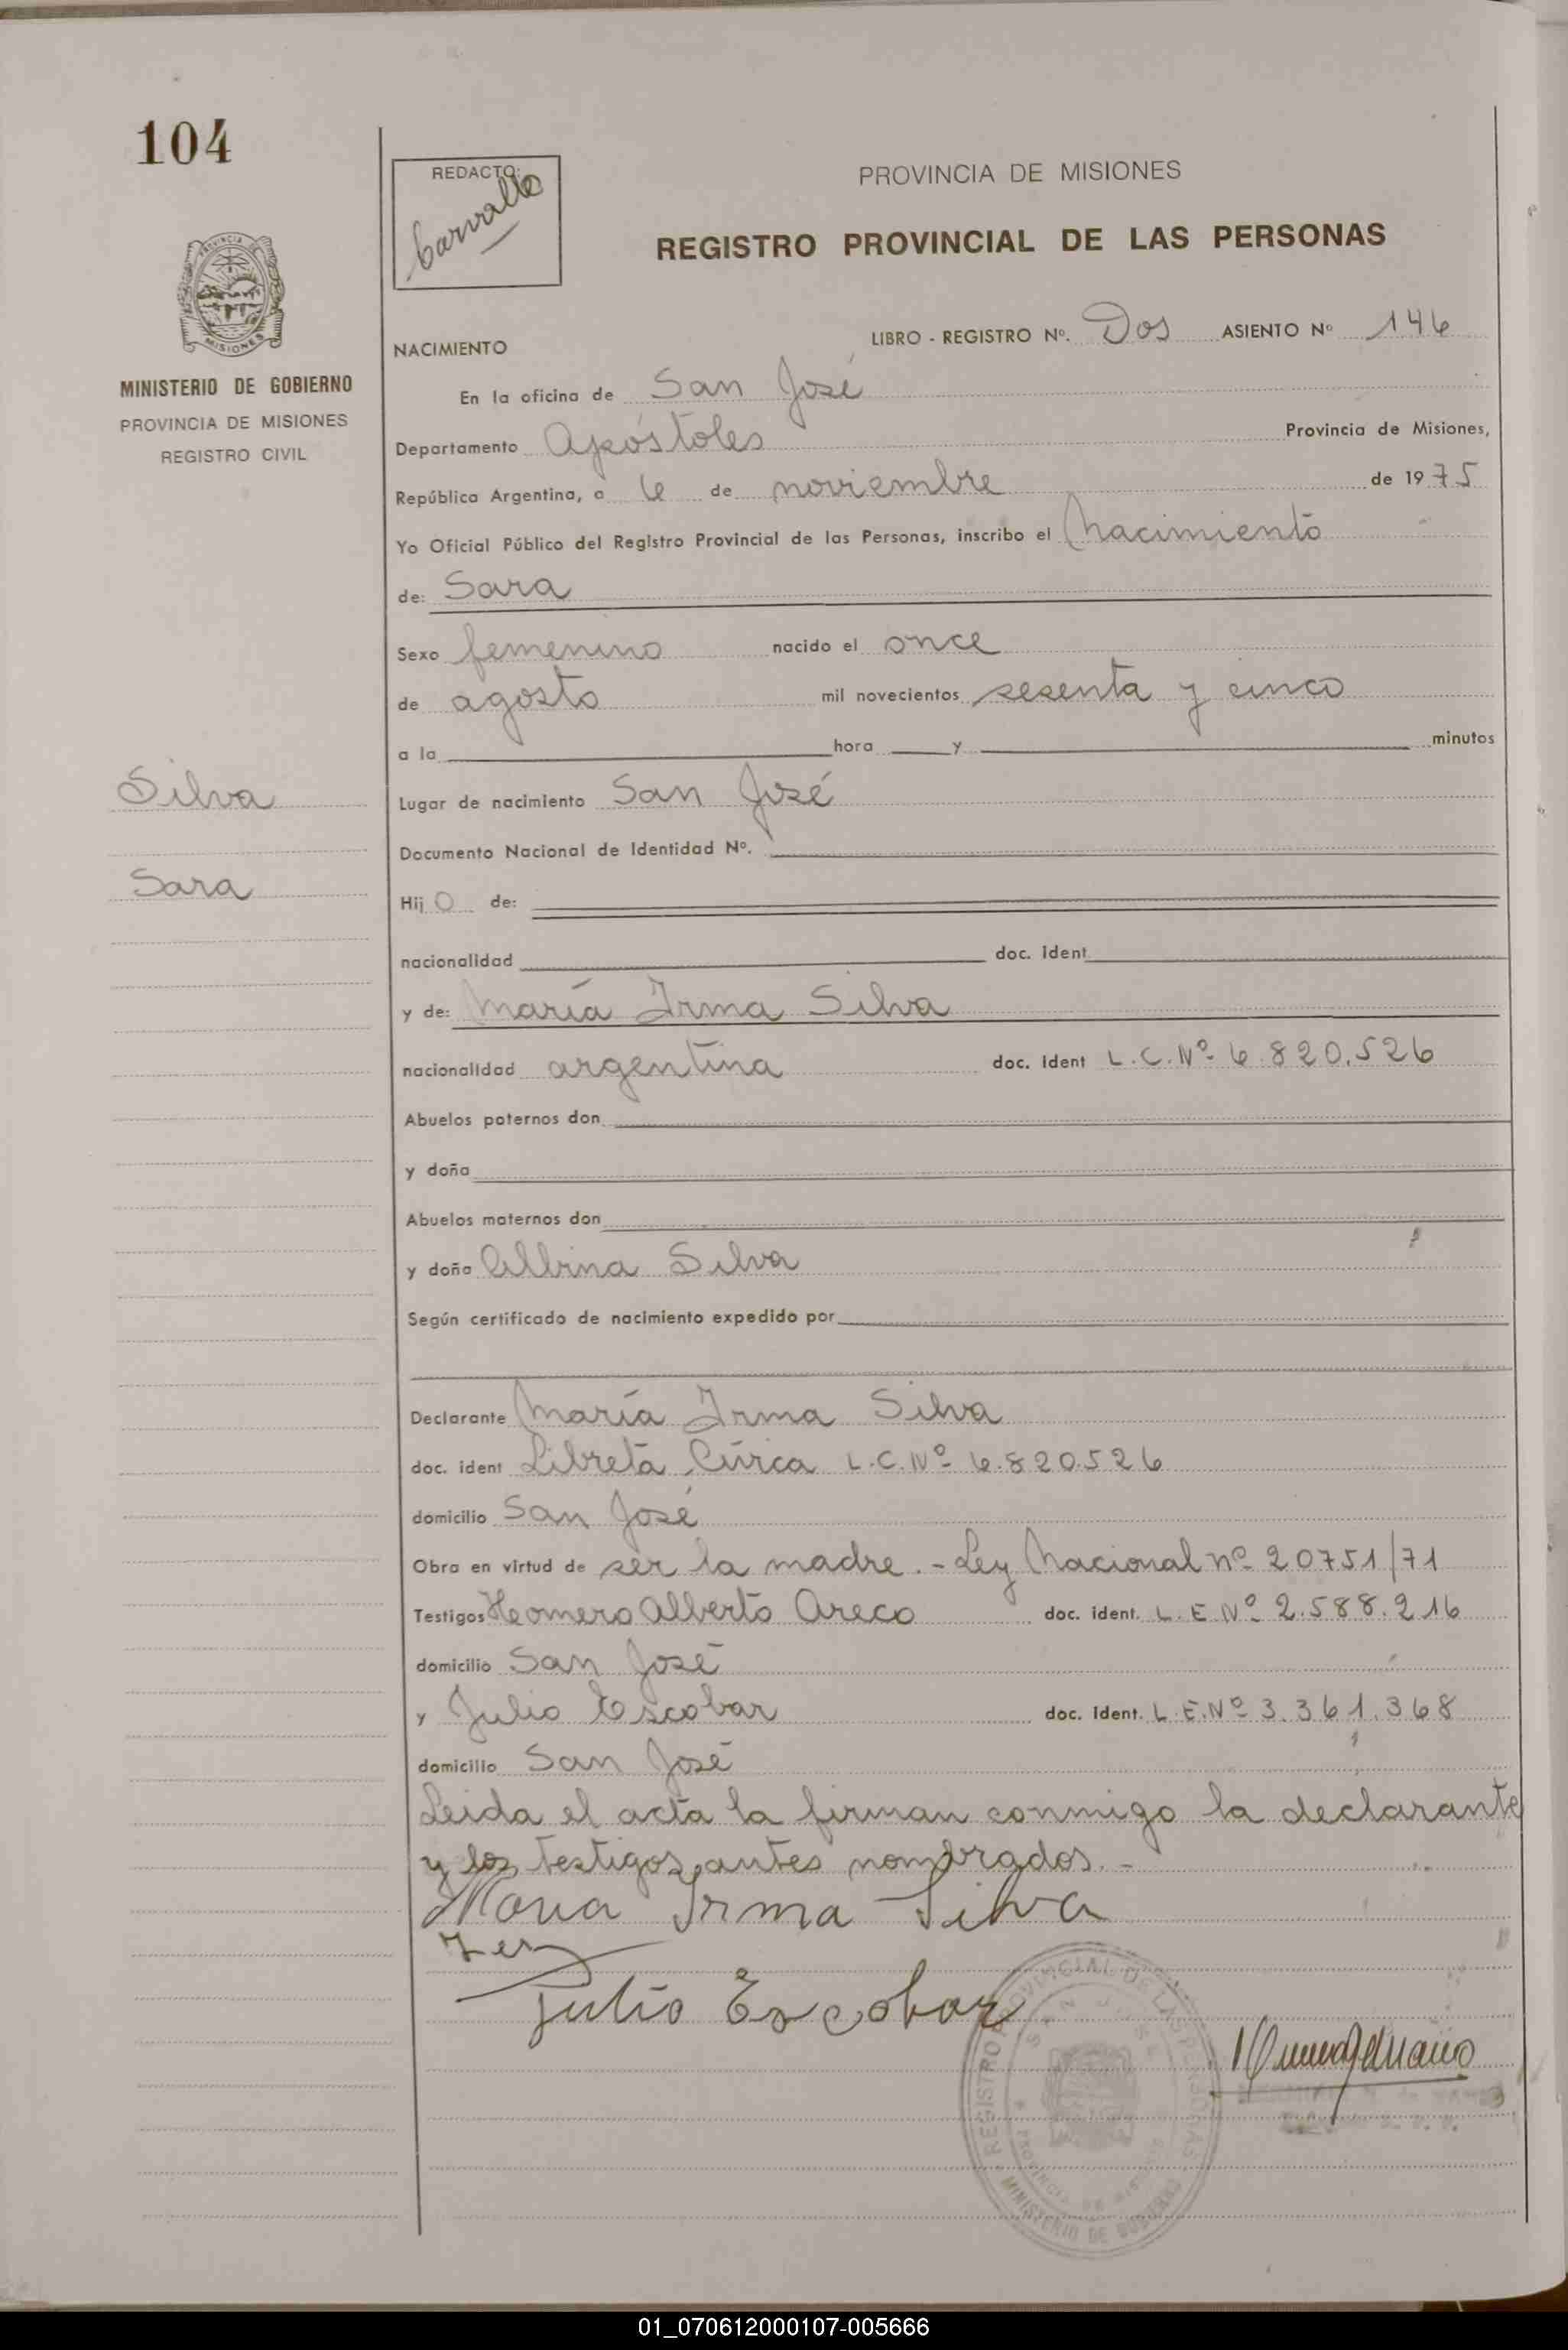 104
REDACTO:
Carvallo
PROVINCIA DE MISIONES
REGISTRO PROVINCIAL DE LAS PERSONAS
PROVINCIA DE
MISIONES
MINISTERIO DE GOBIERNO
PROVINCIA DE MISIONES
REGISTRO CIVIL
LIBRO - REGISTRO Nº. Dos ASIENTO Nº 146
NACIMIENTO
En la oficina de San José
Departamento Apóstoles Provincia de Misiones,
República Argentina, a 6 de noviembre de 1975
Yo Oficial Público del Registro Provincial de las Personas, inscribo el Nacimiento
de: Sara
Sexo femenino nacido el once
de agosto mil novecientos sesenta y cinco
a la hora y minutos
Silva
Lugar de nacimiento San José
Documento Nacional de Identidad Nº.
Sara
Hij O de:
nacionalidad doc. ident
y de: María Irma Silva
nacionalidad argentina doc. ident L.C.Nº 6.820.526
Abuelos paternos don
y doña
Abuelos maternos don
y doña Albina Silva
Según certificado de nacimiento expedido por
Declarante María Irma Silva
doc. ident Libreta Cívica L.C.Nº 6.820.526
domicilio San José
Obra en virtud de ser la madre.- Ley Nacional nº 20751/71
Testigos Homero Alberto Areco doc. ident. L.E.Nº 2.588.216
domicilio San José
y Julio Escobar doc. ident. L.E.Nº 3.361.368
domicilio San José
Leida el acta la firman conmigo la declarante
y los testigos antes nombrados.-
Maria Irma Silva
Julio Escobar
REGISTRO PROVINCIAL DE LAS PERSONAS
SAN JOSE
PROVINCIA DE MISIONES
MINISTERIO DE GOBIERNO
01_070612000107-005666